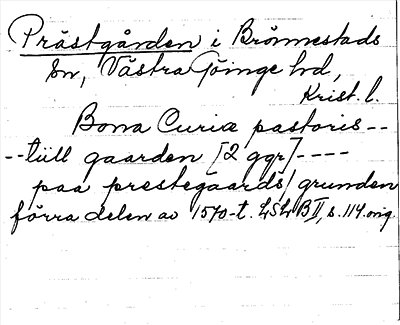 Prästgården i Brönnestads
sn, Västra Göinge hd,
Krist. l.
Bona Curiæ pastoris --
-- tiill gaarden [2 ggr] ----
paa prestegaards/grunden
förra delen av 1570-t. LSLB II, s. 114 orig.